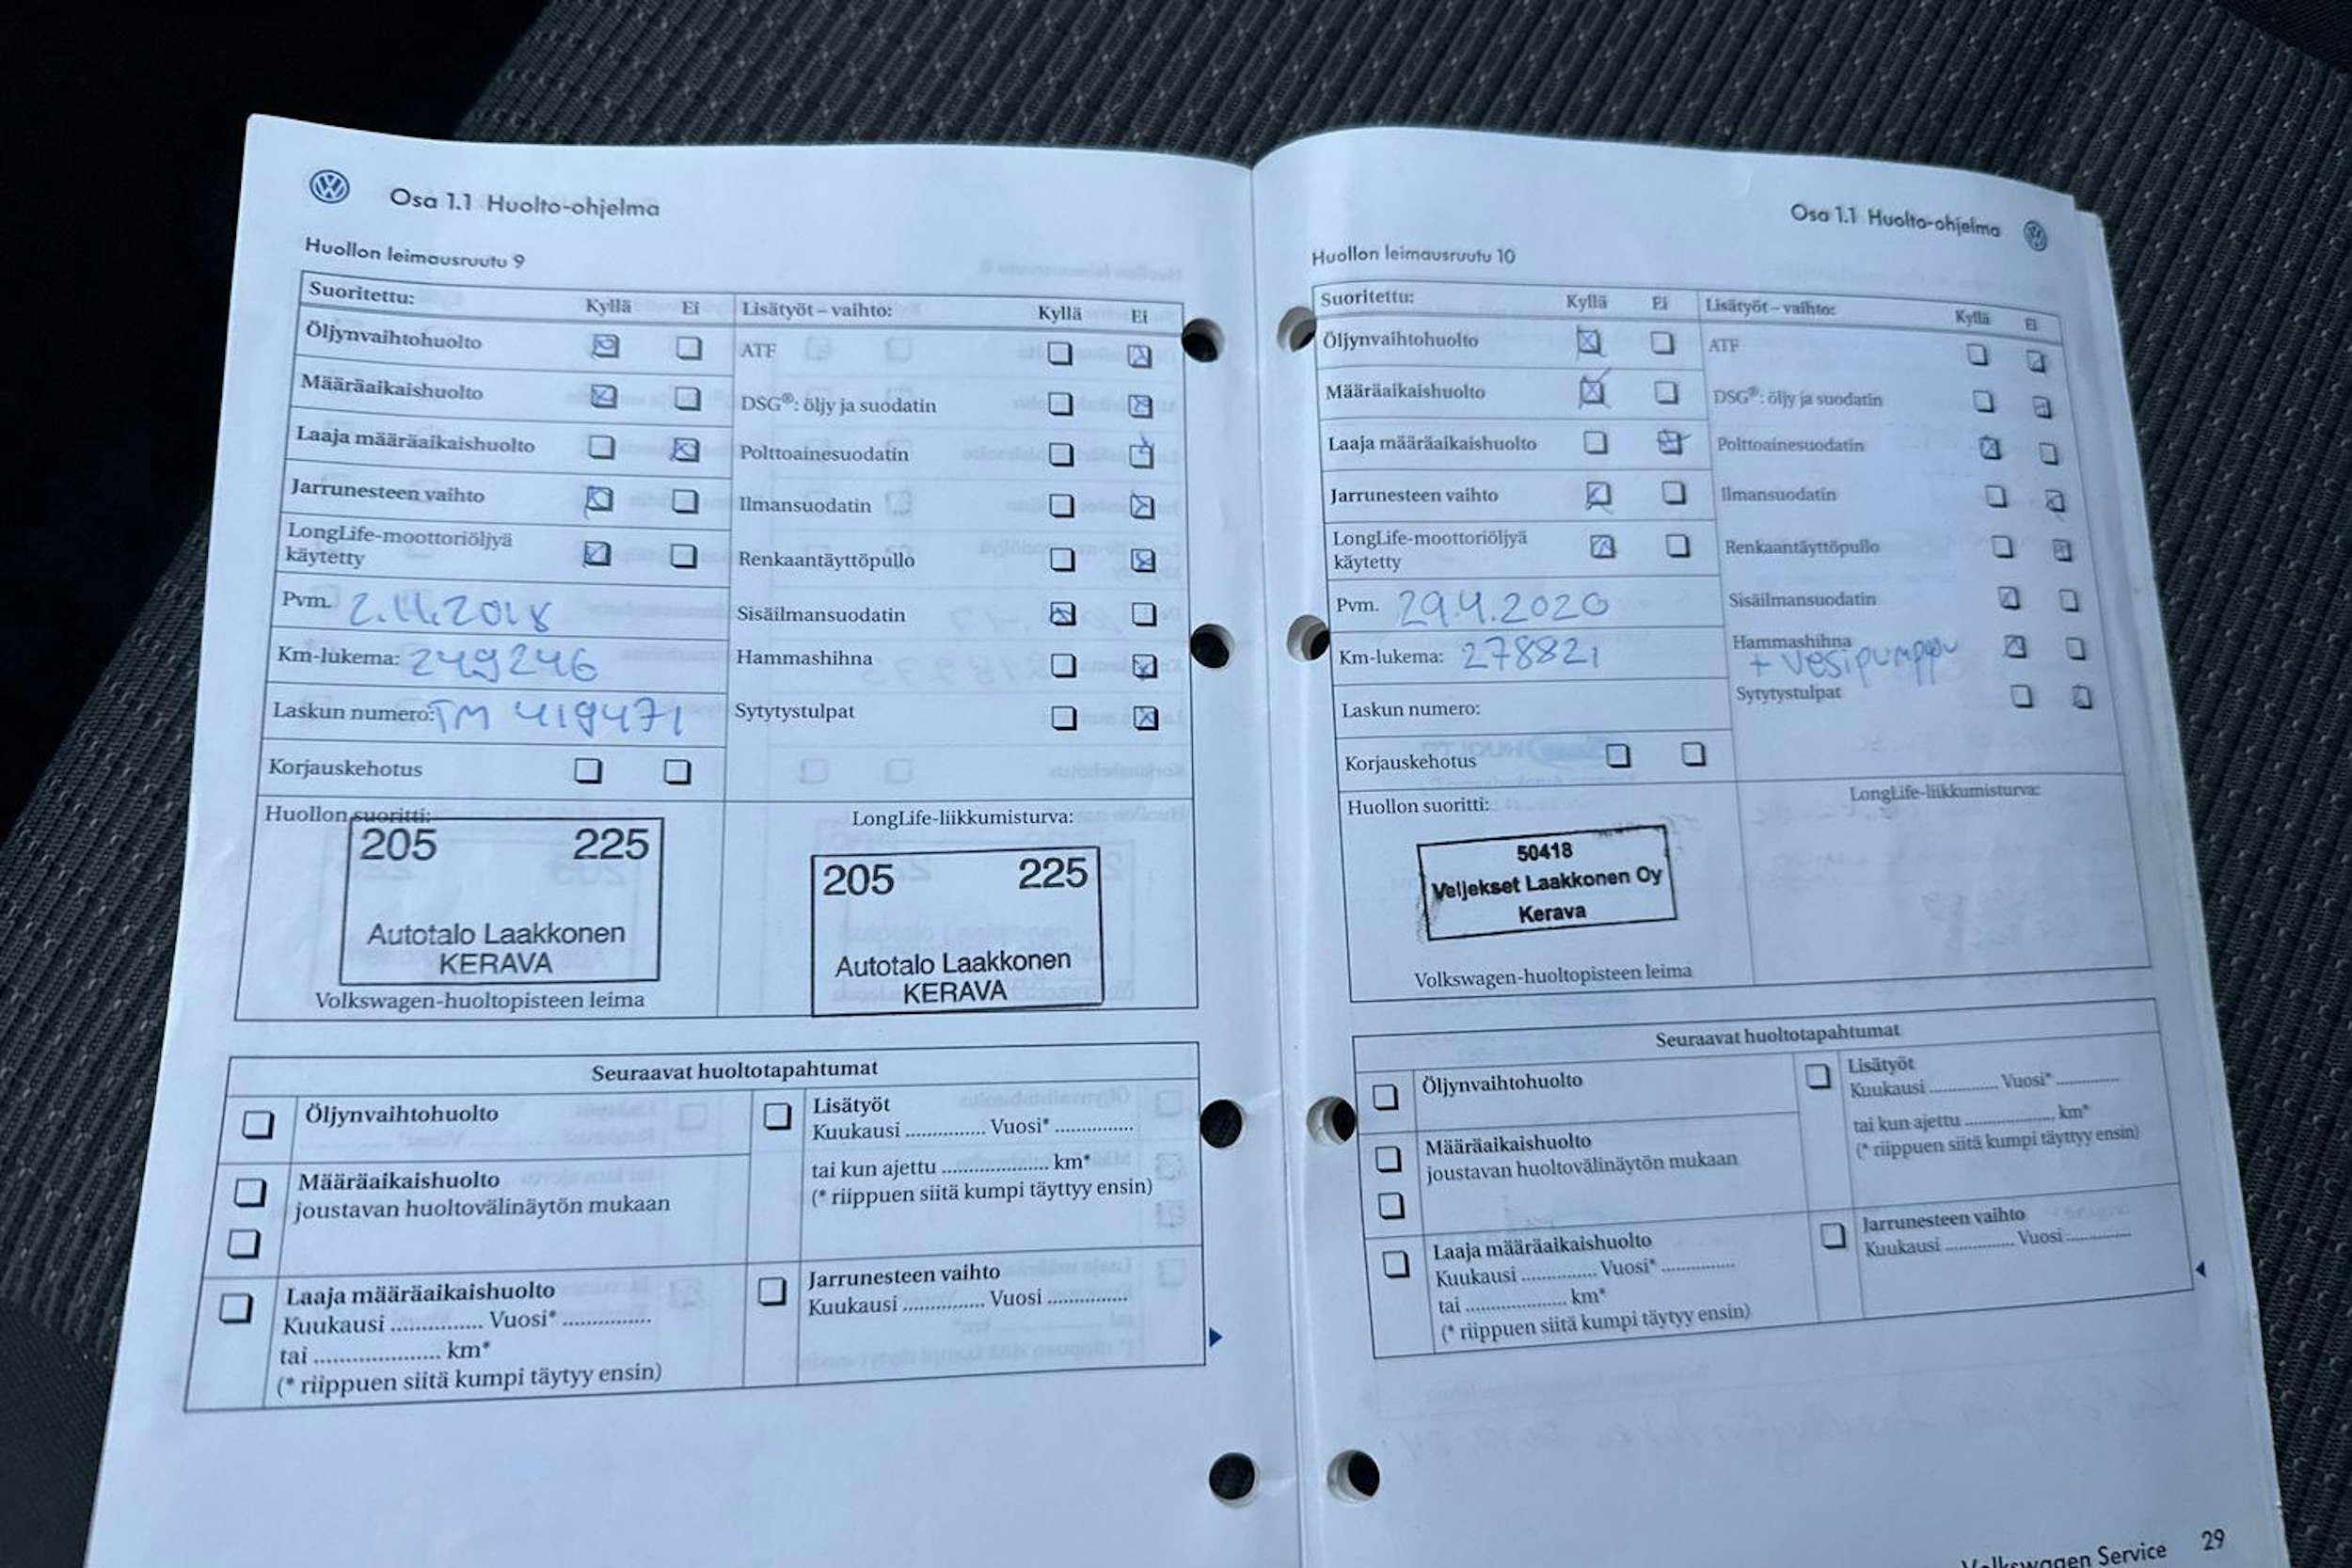 Osa 1.1 Huolto-ohjelma
Huollon leimausruutu 9
Suoritettu: Kyllä Ei Lisätyöt – vaihto: Kyllä Ei
Öljynvaihtohuolto ATF
Määräaikaishuolto DSG®: öljy ja suodatin
Laaja määräaikaishuolto Polttoainesuodatin
Jarrunesteen vaihto Ilmansuodatin
LongLife-moottoriöljyä
käytetty Renkaantäyttöpullo
Pvm. 2.11.2018 Sisäilmansuodatin
Km-lukema: 249246 Hammashihna
Laskun numero: TM 419471 Sytytystulpat
Korjauskehotus
Huollon suoritti: LongLife-liikkumisturva:
205 225
Autotalo Laakkonen
KERAVA
Volkswagen-huoltopisteen leima
205 225
Autotalo Laakkonen
KERAVA
Seuraavat huoltotapahtumat
Öljynvaihtohuolto
Määräaikaishuolto
joustavan huoltovälinäytön mukaan
Laaja määräaikaishuolto
Kuukausi ............... Vuosi* ...............
tai ..................... km*
(* riippuen siitä kumpi täytyy ensin)
Lisätyöt
Kuukausi ............... Vuosi* ...............
tai kun ajettu .................... km*
(* riippuen siitä kumpi täyttyy ensin)
Jarrunesteen vaihto
Kuukausi ............... Vuosi ...............
Osa 1.1 Huolto-ohjelma
Huollon leimausruutu 10
Suoritettu: Kyllä Ei Lisätyöt – vaihto: Kyllä Ei
Öljynvaihtohuolto ATF
Määräaikaishuolto DSG®: öljy ja suodatin
Laaja määräaikaishuolto Polttoainesuodatin
Jarrunesteen vaihto Ilmansuodatin
LongLife-moottoriöljyä
käytetty Renkaantäyttöpullo
Pvm. 29.4.2020 Sisäilmansuodatin
Km-lukema: 278821 Hammashihna
+ vesipumppu
Laskun numero: Sytytystulpat
Korjauskehotus
Huollon suoritti: LongLife-liikkumisturva:
50418
Veljekset Laakkonen Oy
Kerava
Volkswagen-huoltopisteen leima
Seuraavat huoltotapahtumat
Öljynvaihtohuolto
Määräaikaishuolto
joustavan huoltovälinäytön mukaan
Laaja määräaikaishuolto
Kuukausi ............... Vuosi* ...............
tai ..................... km*
(* riippuen siitä kumpi täytyy ensin)
Lisätyöt
Kuukausi ............... Vuosi* ...............
tai kun ajettu .................... km*
(* riippuen siitä kumpi täyttyy ensin)
Jarrunesteen vaihto
Kuukausi ............... Vuosi ...............
Volkswagen Service 29